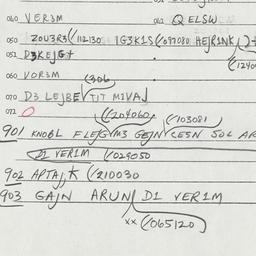 040 VER3M 042 QELSW
050 20U3R3(/112130 IG3K1S(/097080 HEJR1NK
052 D3KEJG+ (/1240
060 VOR3M (306
070 D3 LEJBE TJT M1VAJ
072 (/204060 (/103081
901 KNOBL FLEJG M3 GEJN CE5N SOL AR
D1 VER1M (/029050
902 APTAJ,K (/210030
903 GAJN ARUN D1 VER1M
xx (/065120)